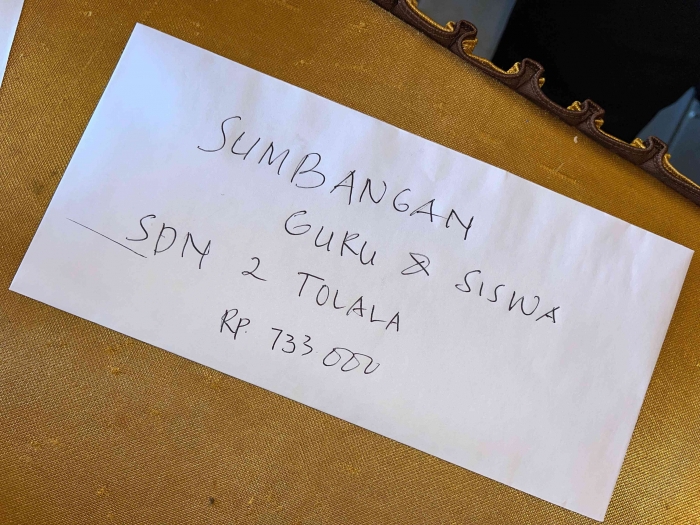 SUMBANGAN
GURU & SISWA
SDN 2 TOLALA
RP. 733 000